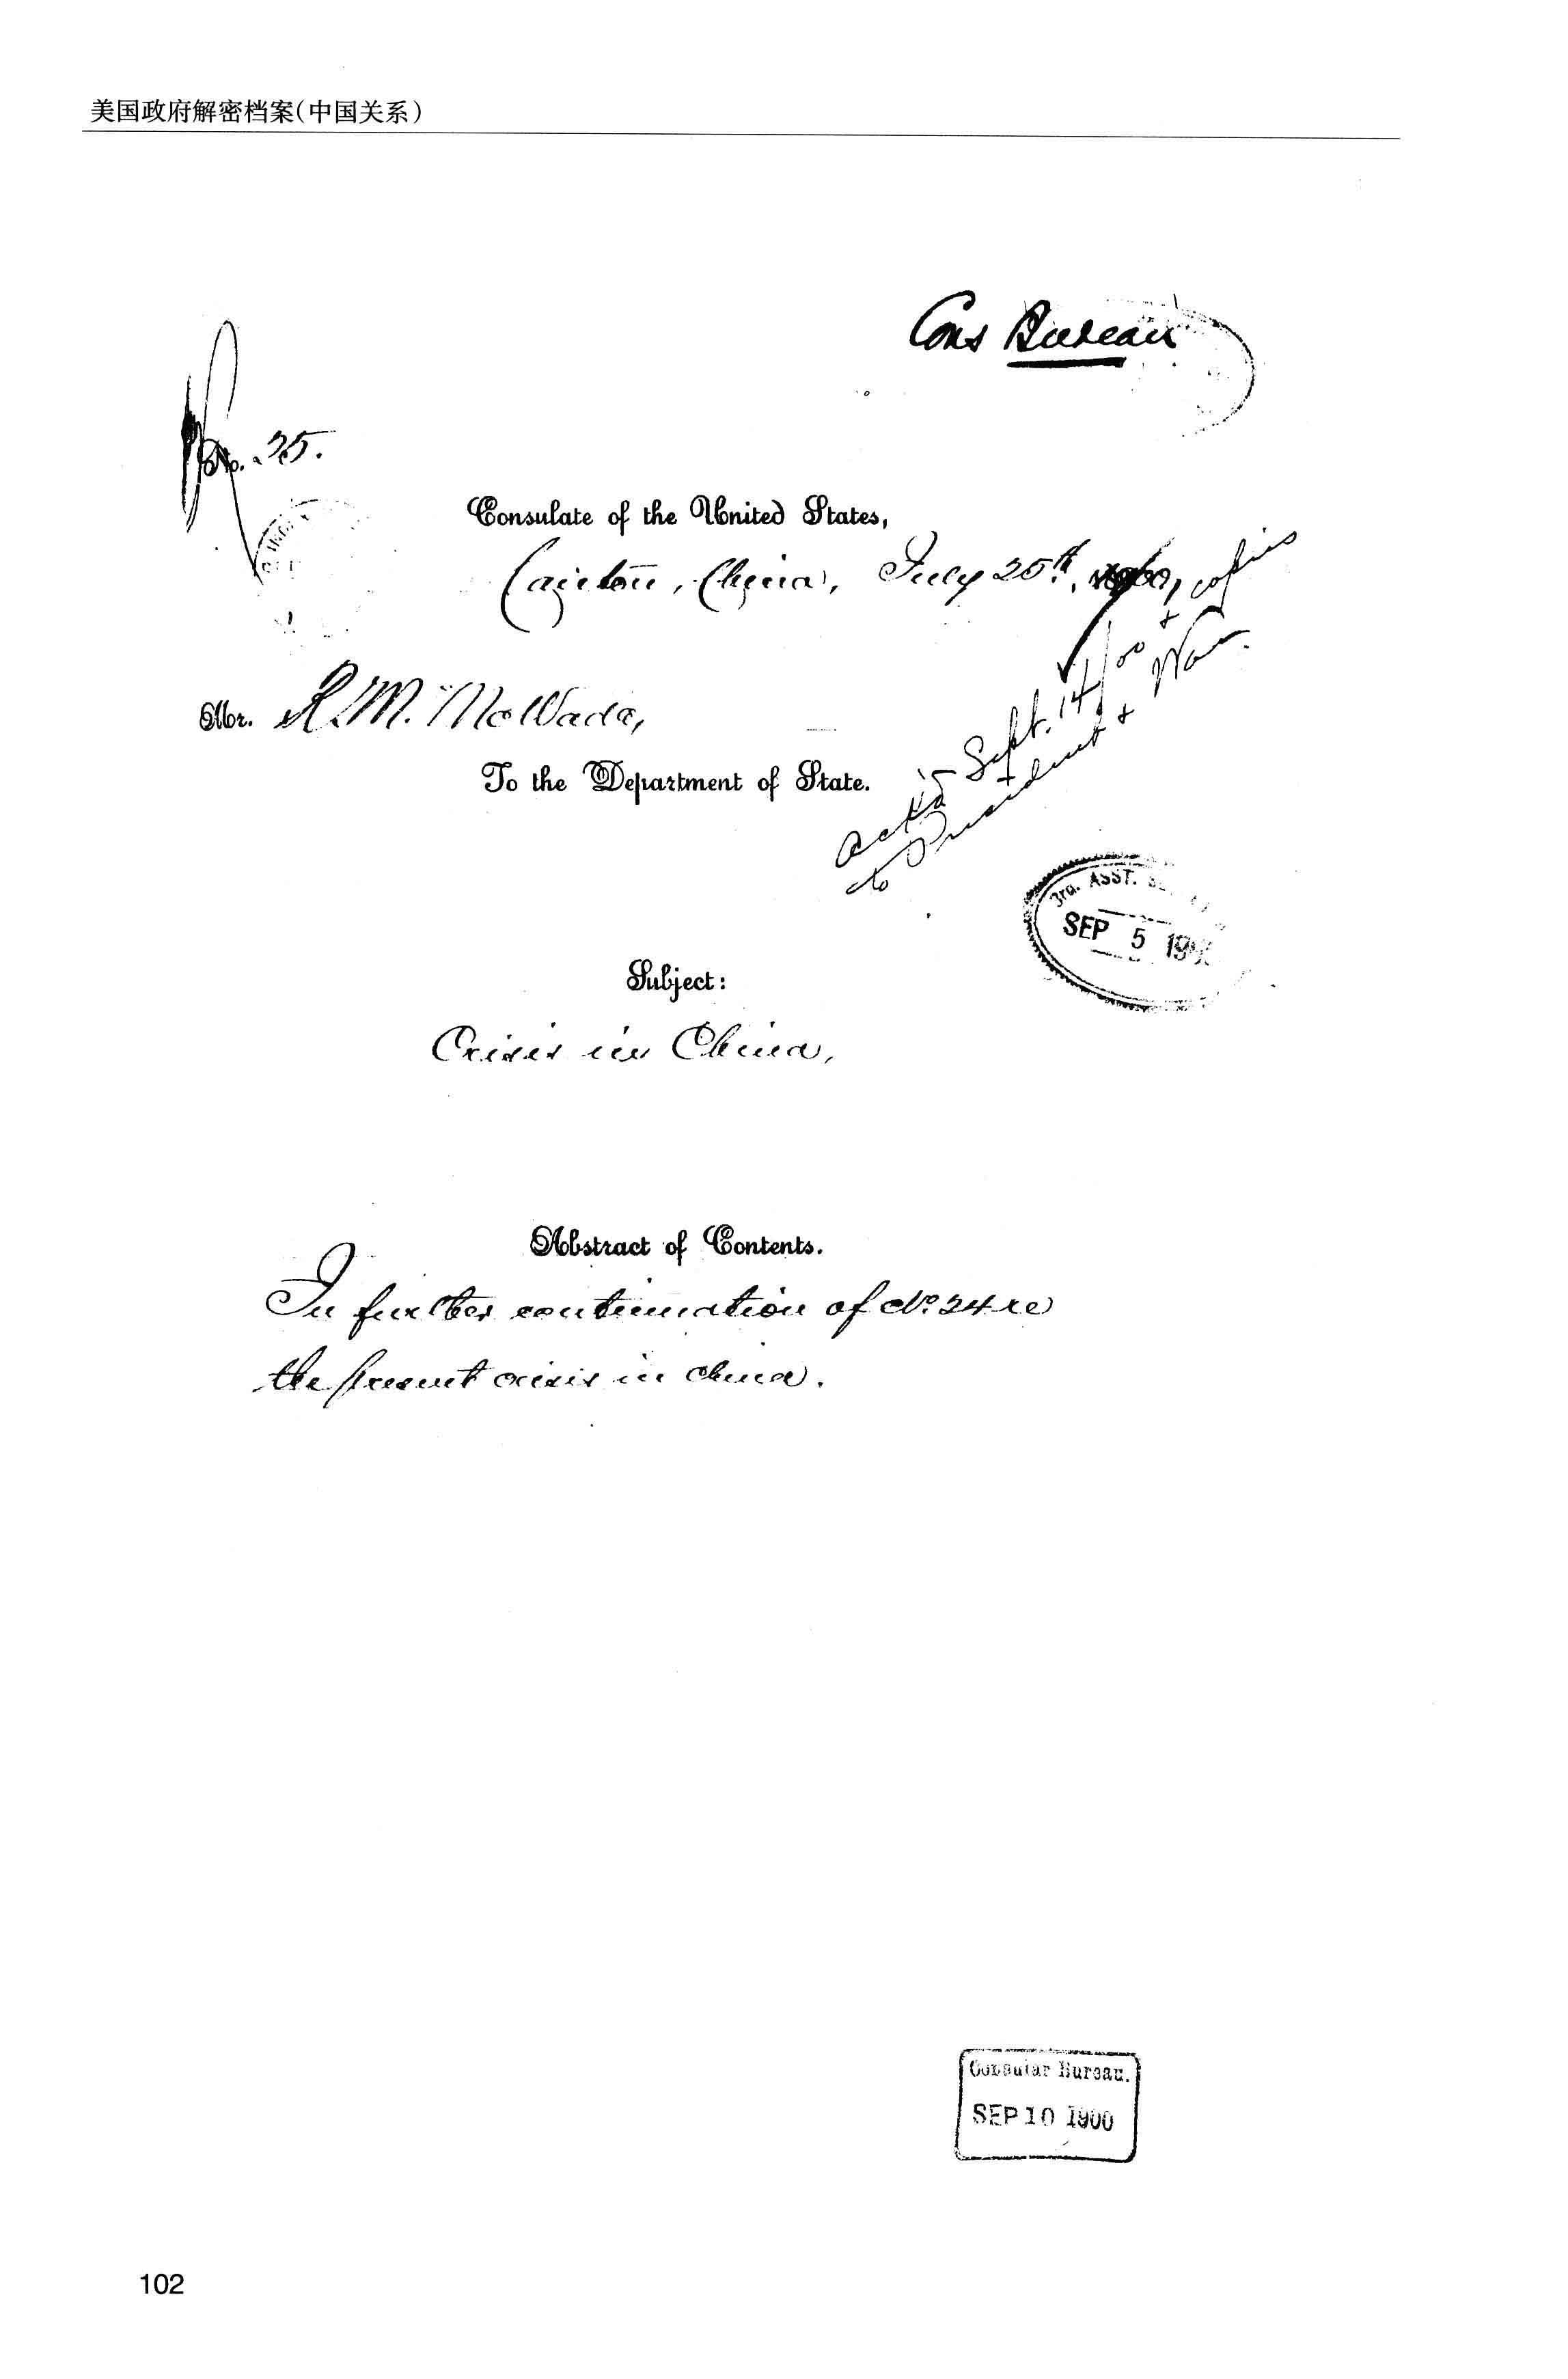 美国政府解密档案(中国关系)
Cons Bureau
No. 25.
Consulate of the United States,
Canton, China, July 25th, 1900,
Mr. R. M. McWade,
To the Department of State.
ack'd Sept. 14/00 + copies
to President + War.
3rd. ASST.
SEP 5 19
Subject:
Crisis in China,
Abstract of Contents.
In further continuation of No 24 re
the present crisis in China.
Consular Bureau.
SEP 10 1900
102